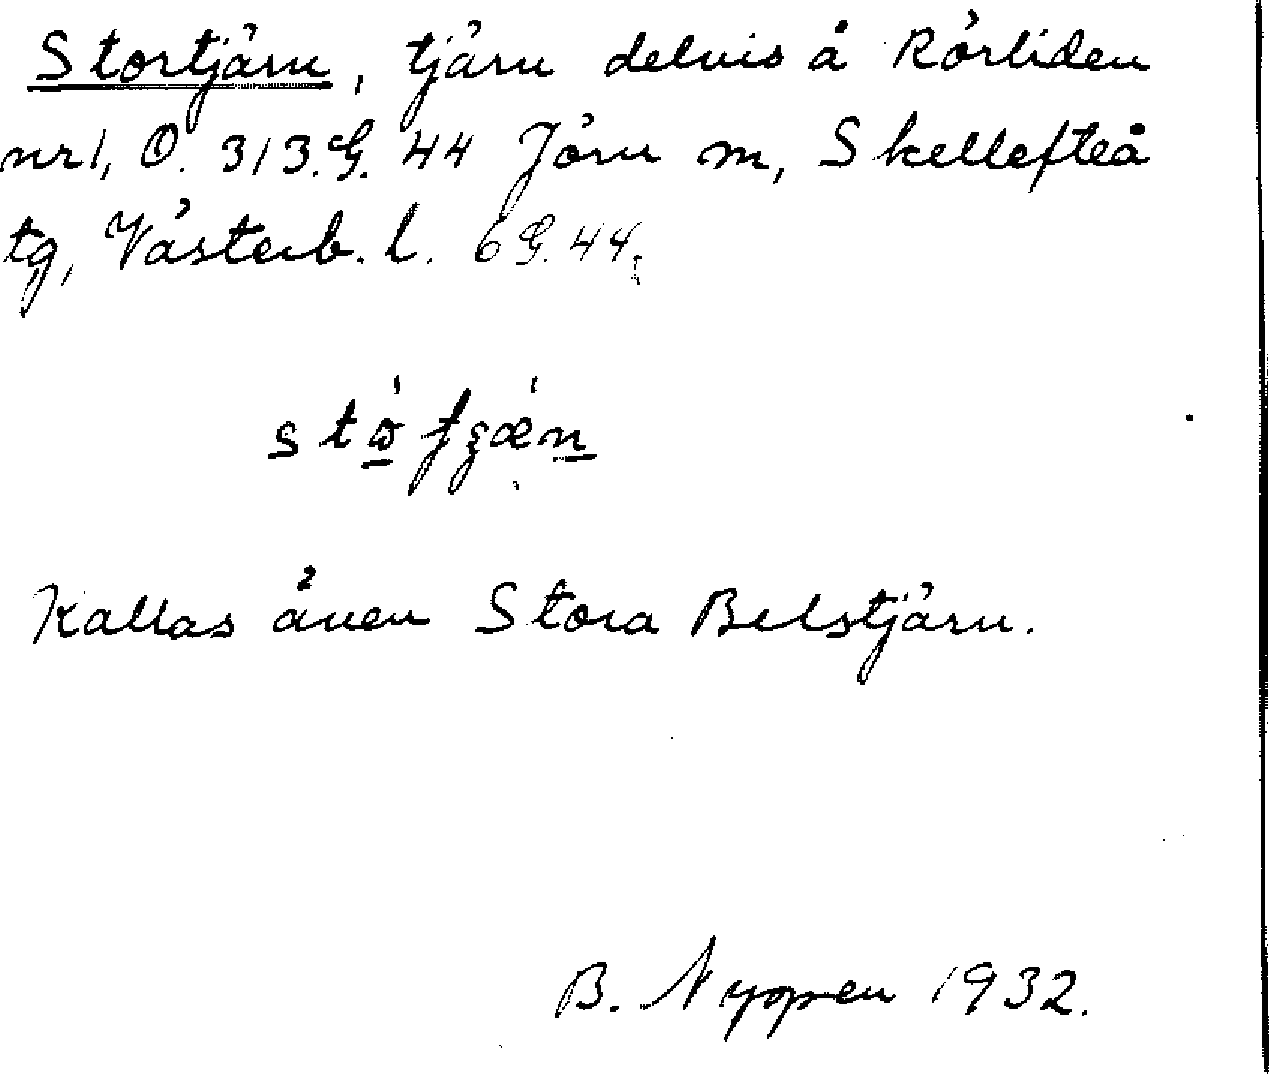 Stortjärn, tjärn delvis å Rörliden
nr 1, O. 313. G. 44 Jörn m, Skellefteå
tg, Västerb. l. 6 G. 44.
Kallas även Stora Belstjärn.
B. Nyppen 1932.